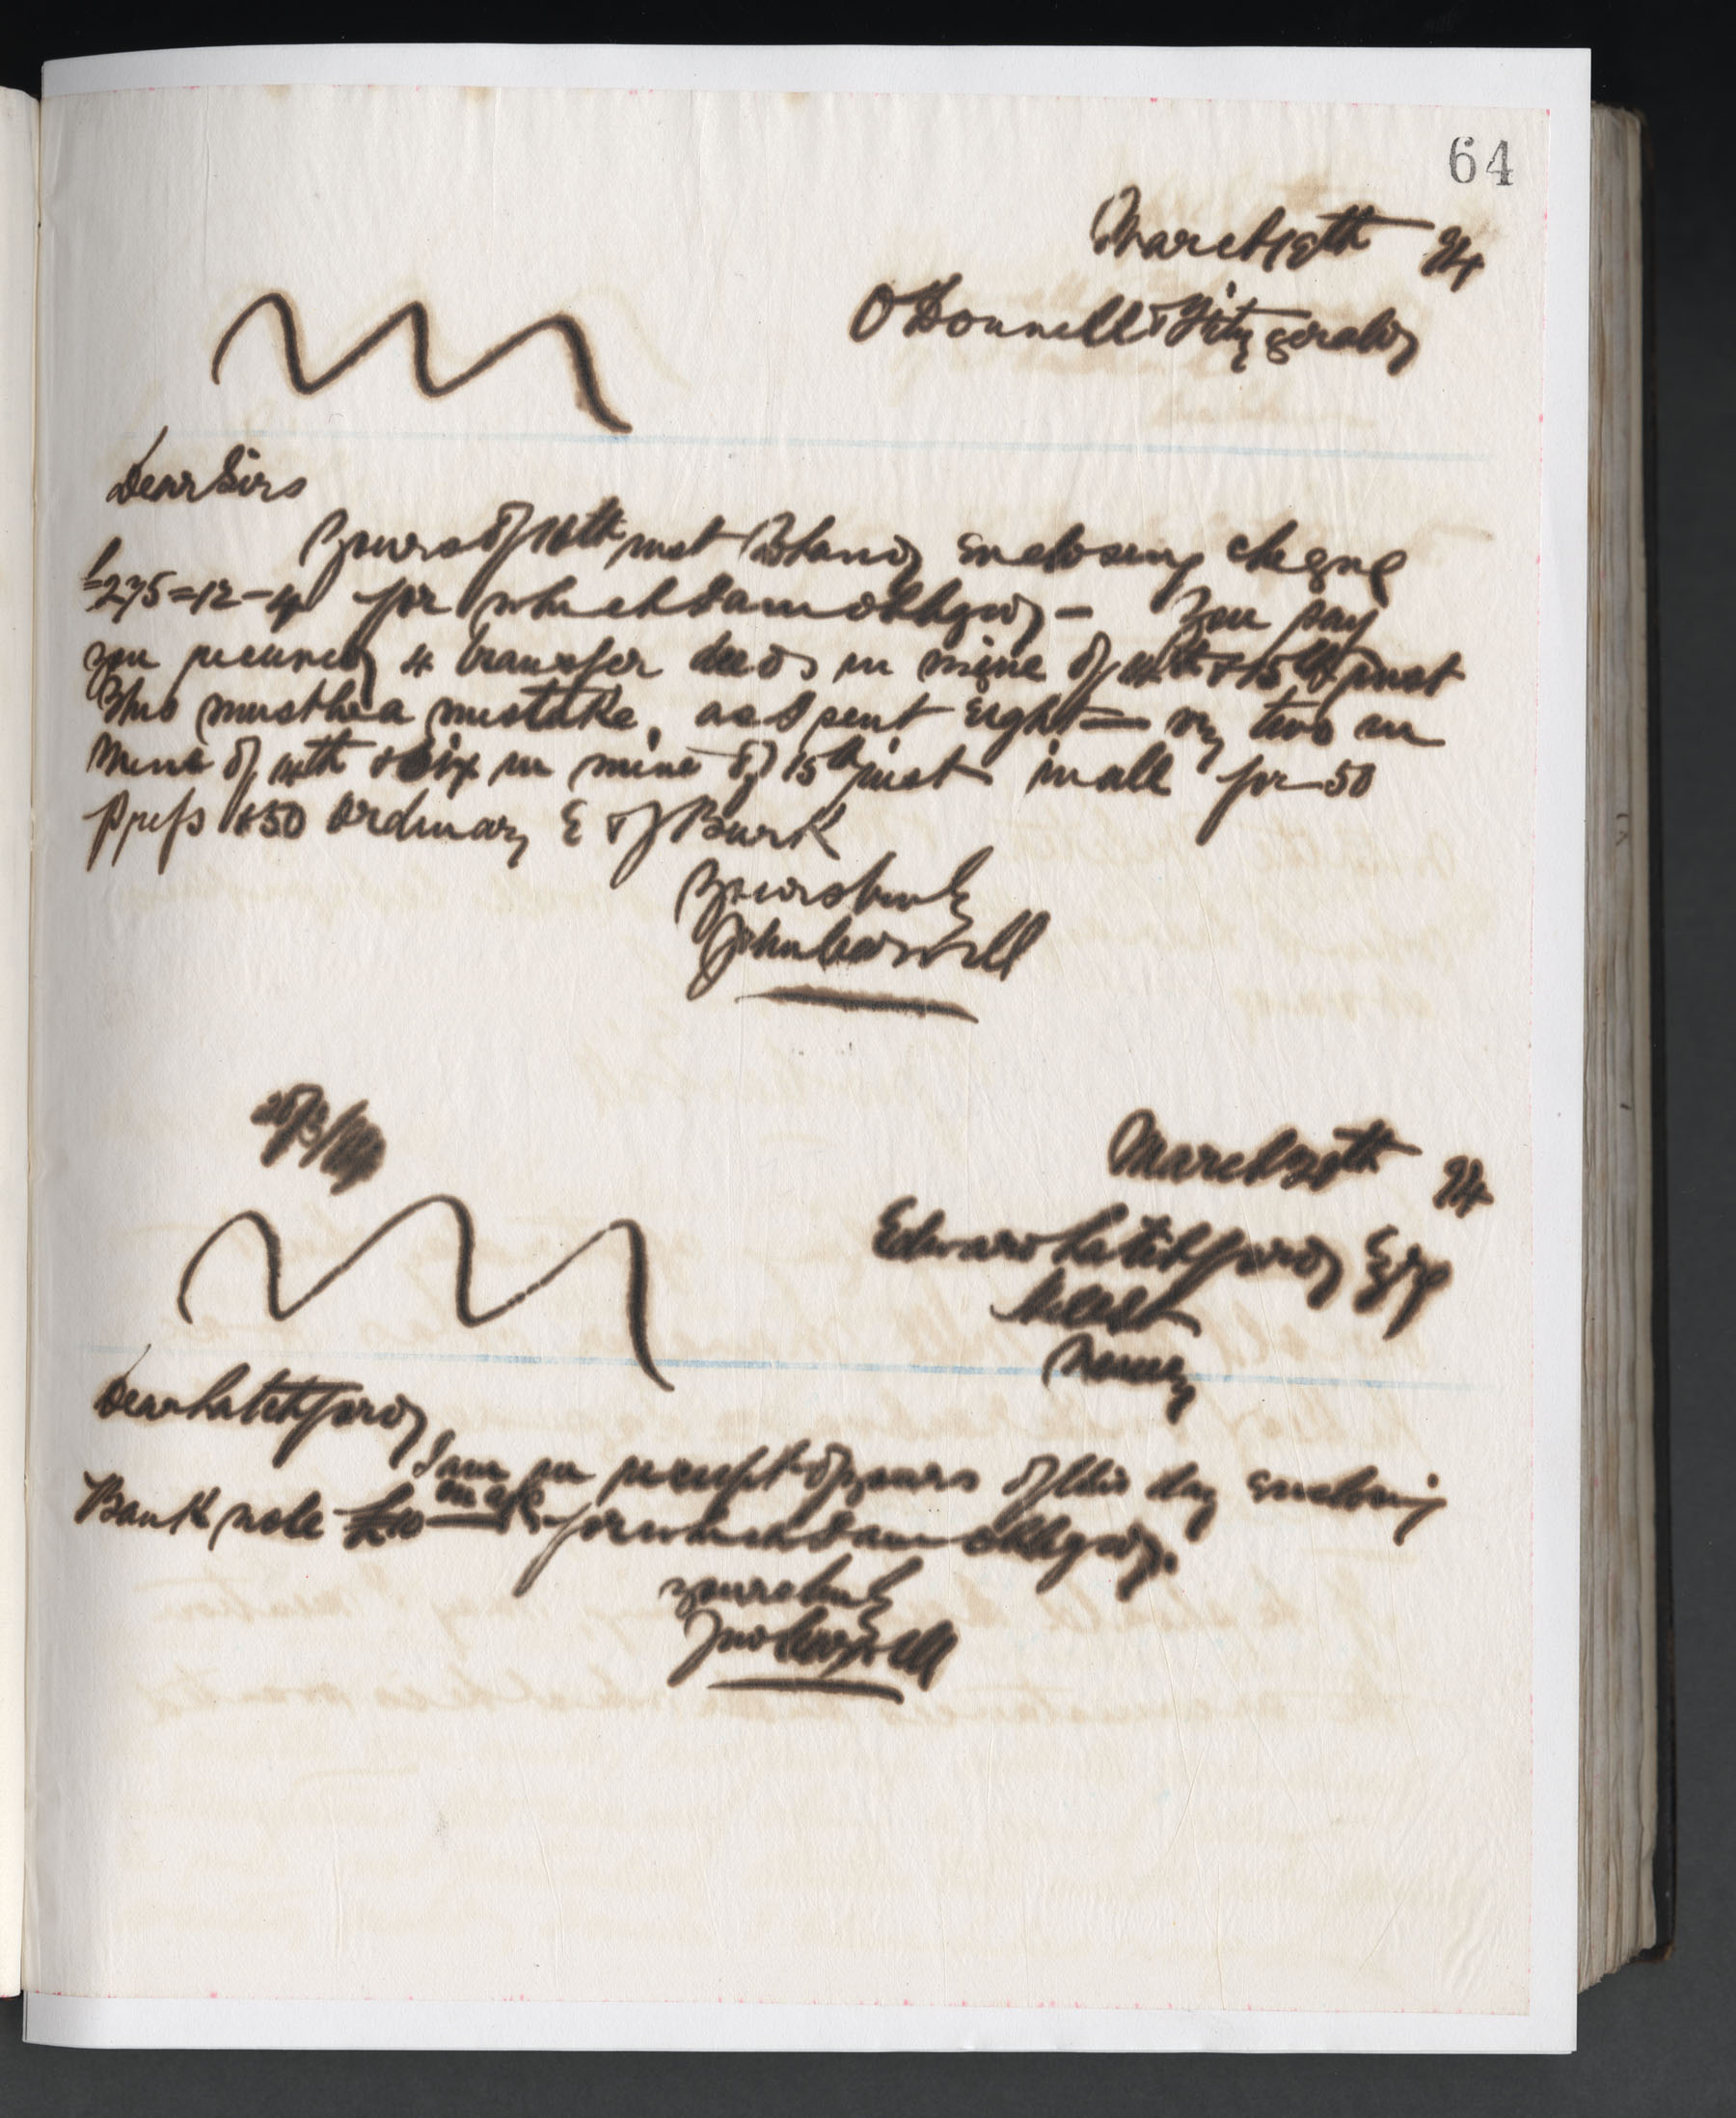 64
March 19th 94
O'Donnell & Fitzgerald
Dear Sirs
Yours of 16th inst to hand enclosing cheque
£275=12-4 for which I am obliged - You say
you received 4 transfer deeds in mine of 14th & 15th inst
This must be a mistake, as I sent eight = viz two in
mine of 14th & six in mine of 15th inst in all for 50
prefs & 50 ordinary E & J Burk
Yours truly
20/3/94
March 20th 94
Edward Latchford Esq
Dear Latchford
I am in receipt of yours of this day enclosing
Bank note £10 for which I am obliged.
Yours truly